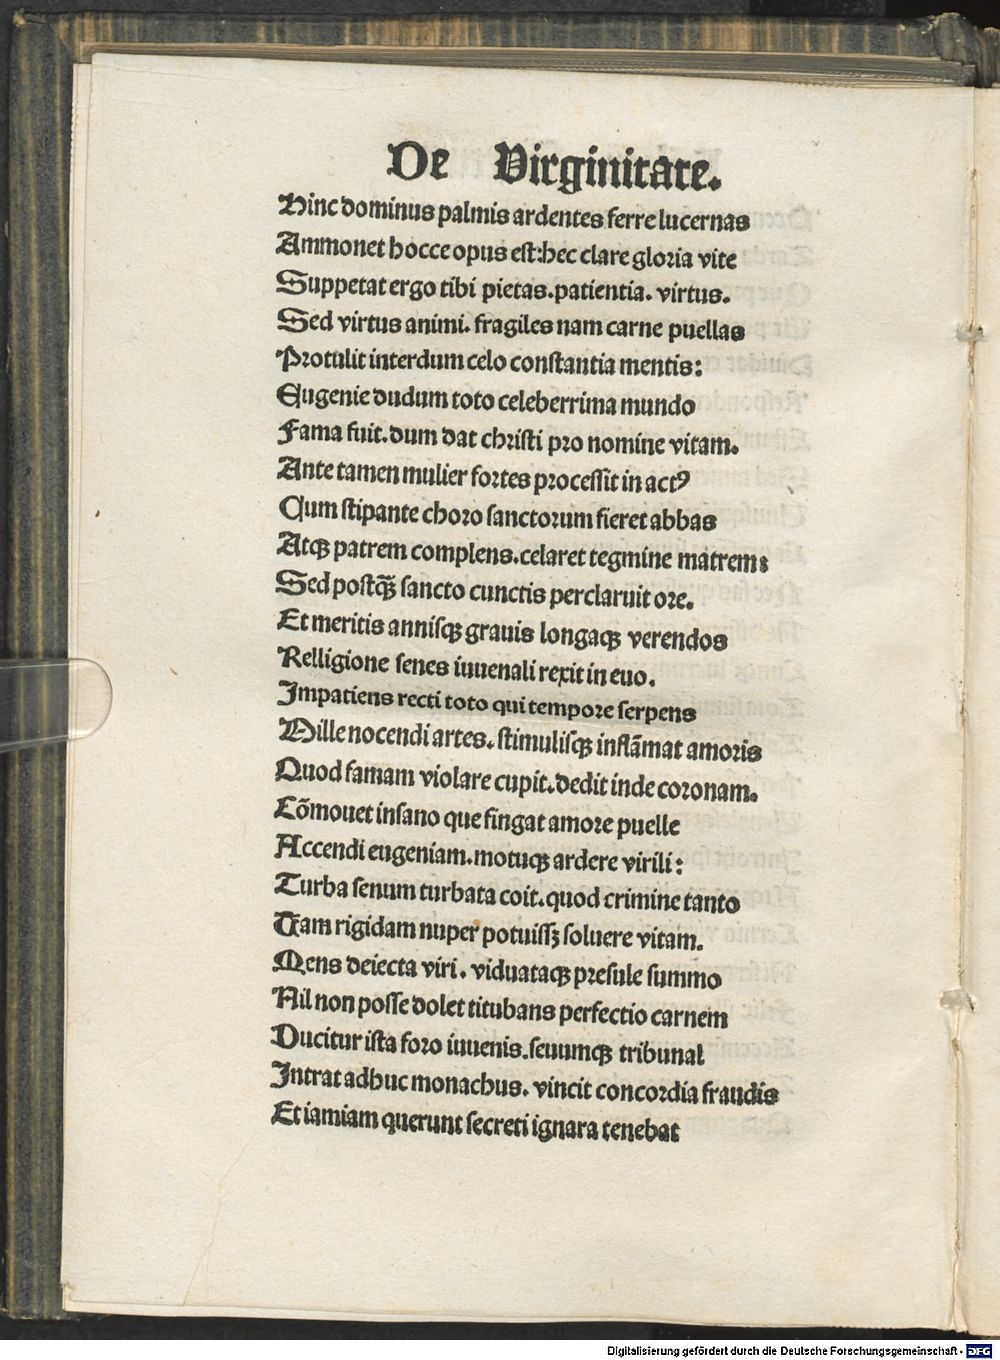 De Virginitate.
Hinc dominus palmis ardentes ferre lucernas
Ammonet hocce opus est:hec clare gloria vite
Suppetat ergo tibi pietas.patientia. virtus.
Sed virtus animi. fragiles nam carne puellas
Protulit interdum celo constantia mentis:
Eugenie dudum toto celeberrima mundo
Fama fuit.dum dat christi pro nomine vitam.
Ante tamen mulier fortes processit in actꝰ
Cum stipante choro sanctorum fieret abbas
Atqꝫ patrem complens.celaret tegmine matrem:
Sed postqꝫ̃ sancto cunctis perclaruit ore.
Et meritis annisqꝫ grauis longaqꝫ verendos
Relligione senes iuuenali rexit in euo.
Impatiens recti toto qui tempore serpens
Mille nocendi artes. stimulisqꝫ inflãmat amoris
Quod famam violare cupit.dedit inde coronam.
Cõmouet insano que fingat amore puelle
Accendi eugeniam.motuqꝫ ardere virili:
Turba senum turbata coit.quod crimine tanto
Tam rigidam nuper potuissꝫ soluere vitam.
Mens deiecta viri. viduataqꝫ presule summo
Nil non posse dolet titubans perfectio carnem
Ducitur ista foro iuuenis.seuumqꝫ tribunal
Intrat adhuc monachus. vincit concordia fraudis
Et iamiam querunt secreti ignara tenebat
Digitalisierung gefördert durch die Deutsche Forschungsgemeinschaft - DFG